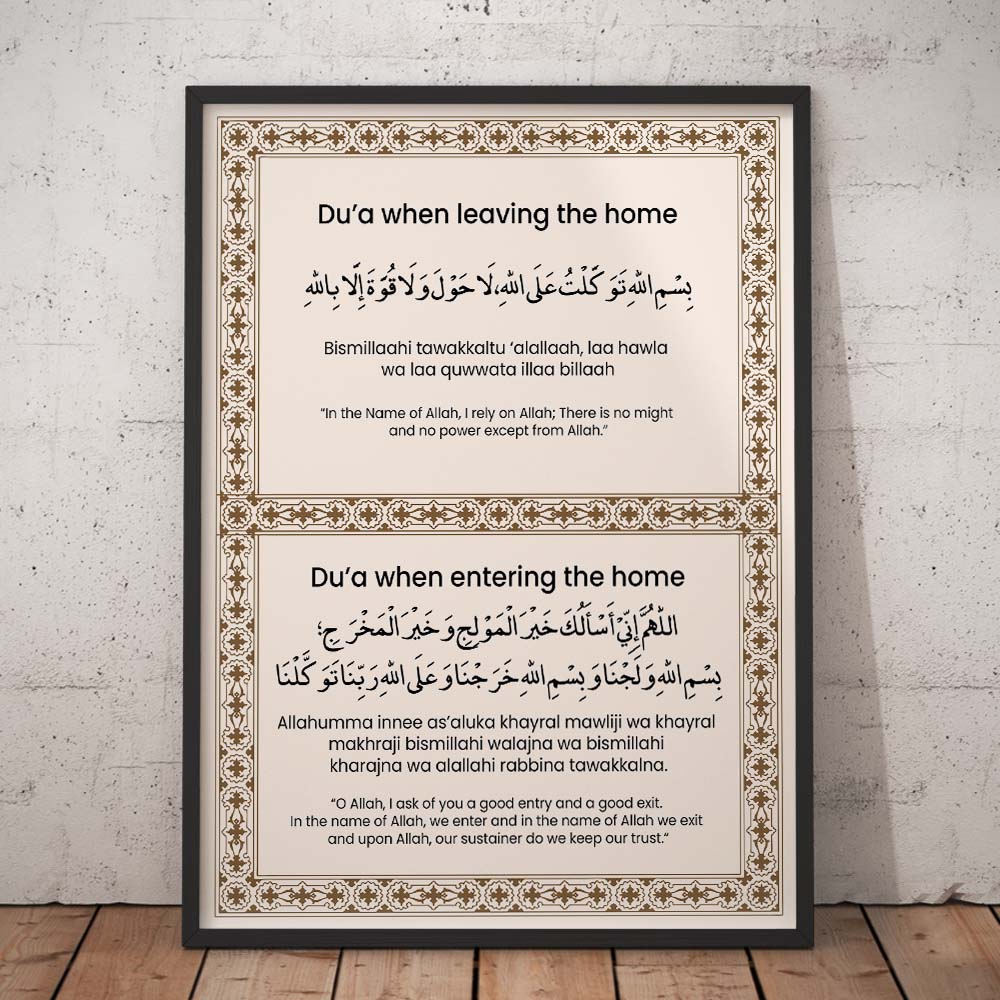 Du’a when leaving the home
بِسْمِ اللهِ تَوَكَّلْتُ عَلَى اللهِ، لَا حَوْلَ وَلَا قُوَّةَ إِلَّا بِاللهِ
Bismillaahi tawakkaltu ‘alallaah, laa hawla
wa laa quwwata illaa billaah
“In the Name of Allah, I rely on Allah; There is no might
and no power except from Allah.”
Du’a when entering the home
اللّٰهُمَّ إِنِّيْ أَسْأَلُكَ خَيْرَ الْمَوْلِجِ وَخَيْرَ الْمَخْرَجِ؛
بِسْمِ اللهِ وَلَجْنَا وَبِسْمِ اللهِ خَرَجْنَا وَعَلَى اللهِ رَبِّنَا تَوَكَّلْنَا
Allahumma innee as’aluka khayral mawliji wa khayral
makhraji bismillahi walajna wa bismillahi
kharajna wa alallahi rabbina tawakkalna.
“O Allah, I ask of you a good entry and a good exit.
In the name of Allah, we enter and in the name of Allah we exit
and upon Allah, our sustainer do we keep our trust.“